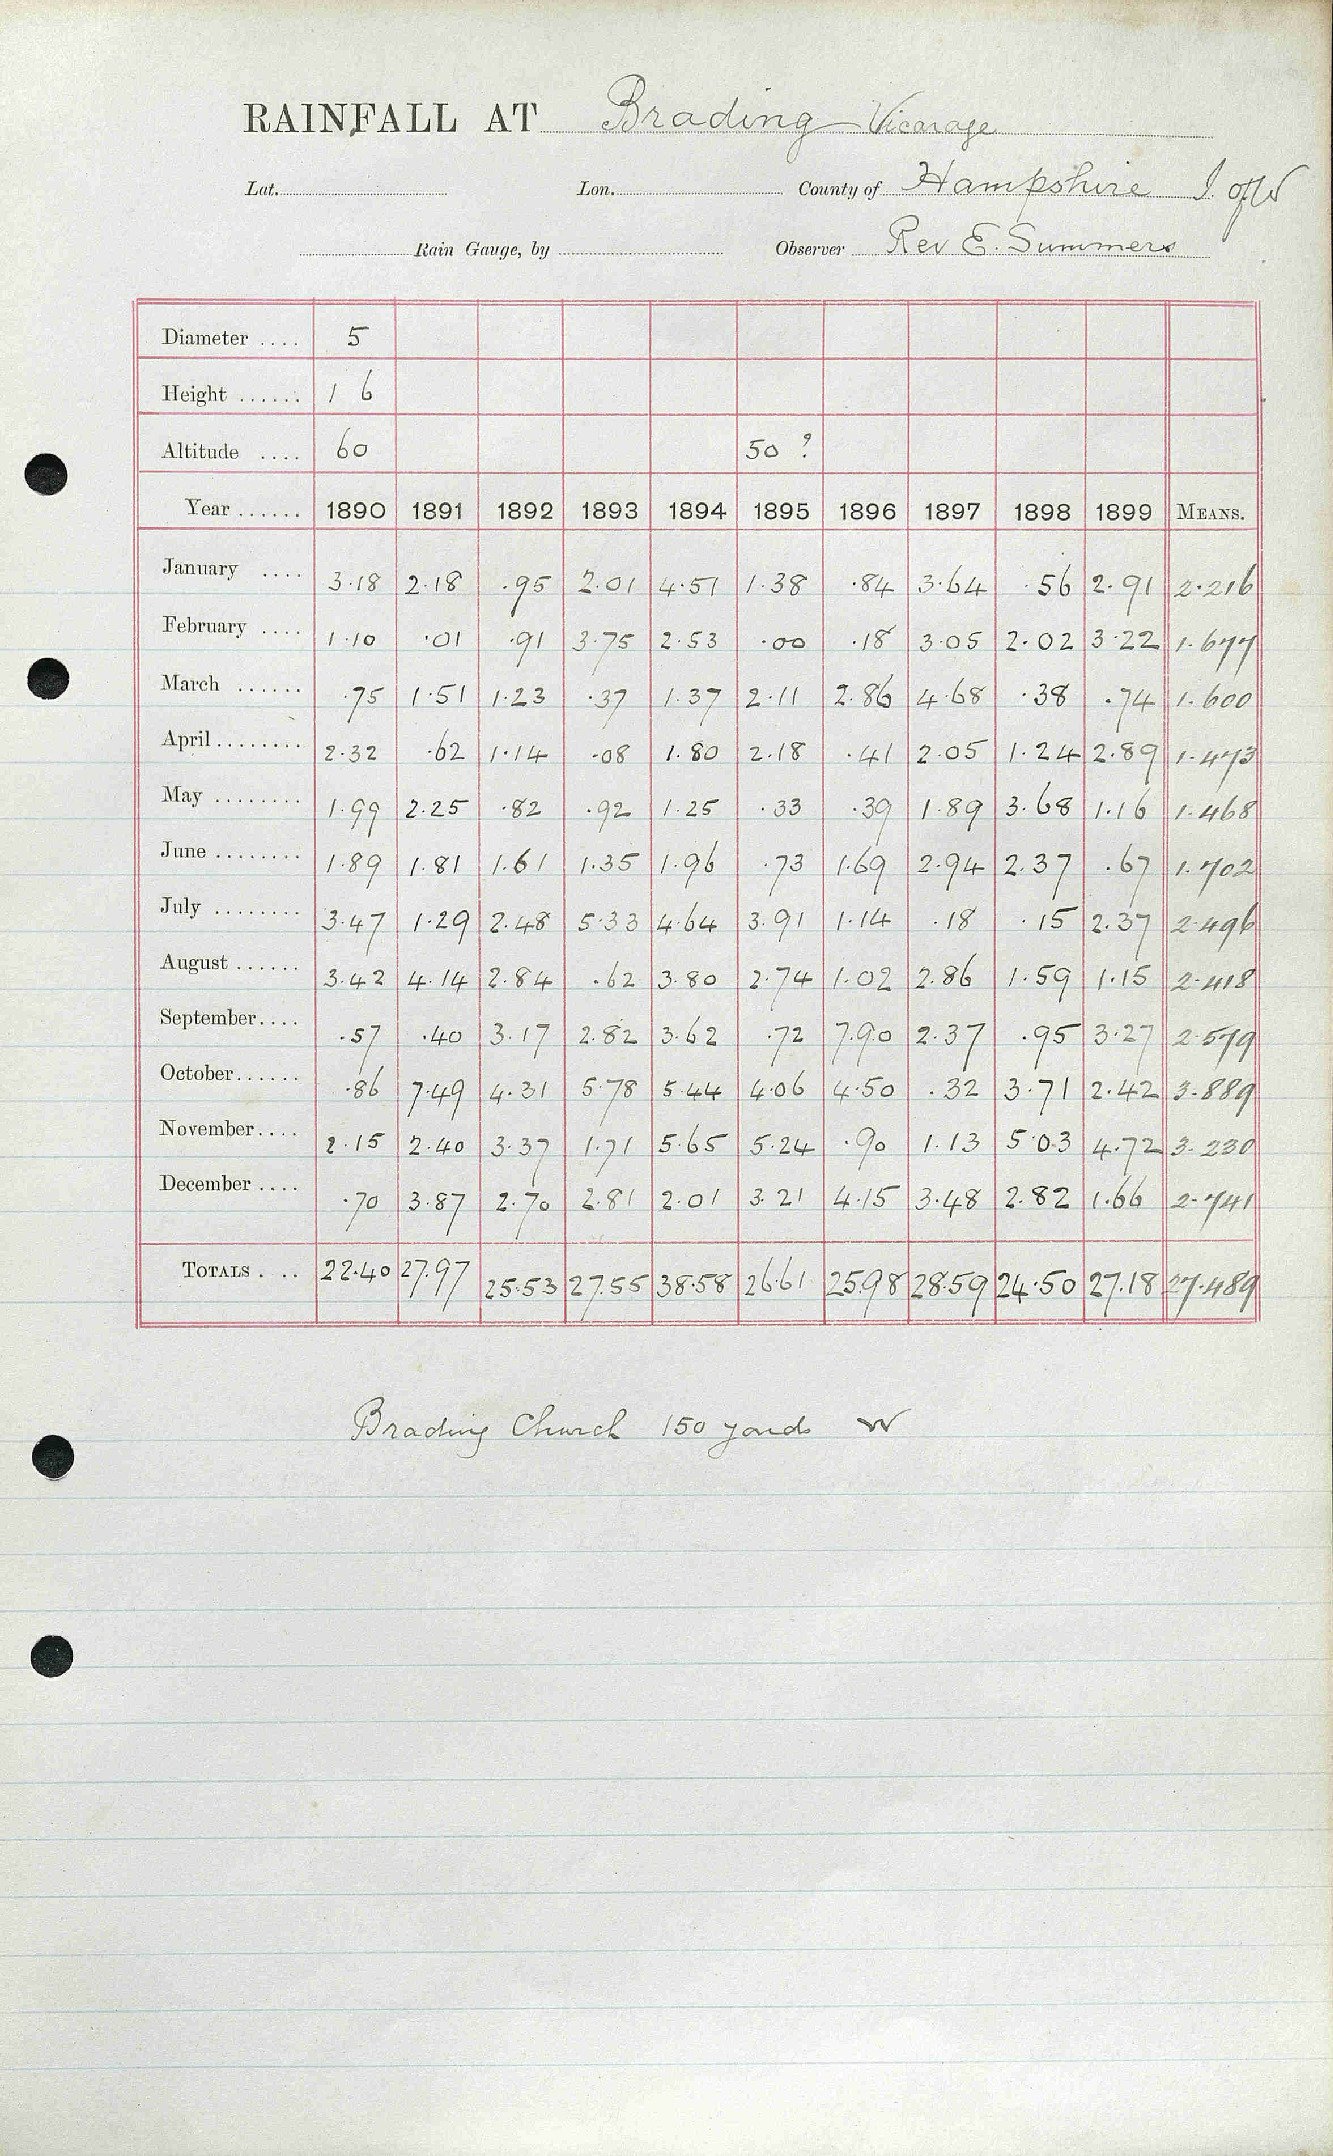 RAINFALL AT Brading Vicarage
Lat. Lon. County of Hampshire I of W
Rain Gauge, by Observer Rev E. Summers
Diameter .... 5
Height ...... 1 6
Altitude .... 60 50 ?
Year ...... 1890 1891 1892 1893 1894 1895 1896 1897 1898 1899 MEANS.
January .... 3.18 2.18 .95 2.01 4.51 1.38 .84 3.64 .56 2.91 2.216
February .... 1.10 .01 .91 3.75 2.53 .00 .18 3.05 2.02 3.22 1.677
March ...... .75 1.51 1.23 .37 1.37 2.11 2.86 4.68 .38 .74 1.600
April ........ 2.32 .62 1.14 .08 1.80 2.18 .41 2.05 1.24 2.89 1.473
May ........ 1.99 2.25 .82 .92 1.25 .33 .39 1.89 3.68 1.16 1.468
June ........ 1.89 1.81 1.61 1.35 1.96 .73 1.69 2.94 2.37 .67 1.702
July ........ 3.47 1.29 2.48 5.33 4.64 3.91 1.14 .18 .15 2.37 2.496
August ...... 3.42 4.14 2.84 .62 3.80 2.74 1.02 2.86 1.59 1.15 2.418
September.... .57 .40 3.17 2.82 3.62 .72 7.90 2.37 .95 3.27 2.579
October...... .86 7.49 4.31 5.78 5.44 4.06 4.50 .32 3.71 2.42 3.889
November.... 2.15 2.40 3.37 1.71 5.65 5.24 .90 1.13 5.03 4.72 3.230
December .... .70 3.87 2.70 2.81 2.01 3.21 4.15 3.48 2.82 1.66 2.741
TOTALS . .. 22.40 27.97 25.53 27.55 38.58 26.61 25.98 28.59 24.50 27.18 27.489
Brading Church 150 yards W